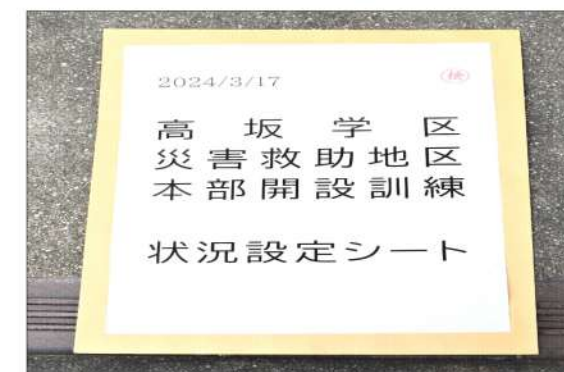 2024/3/17
高坂学区
災害救助地区
本部開設訓練
状況設定シート